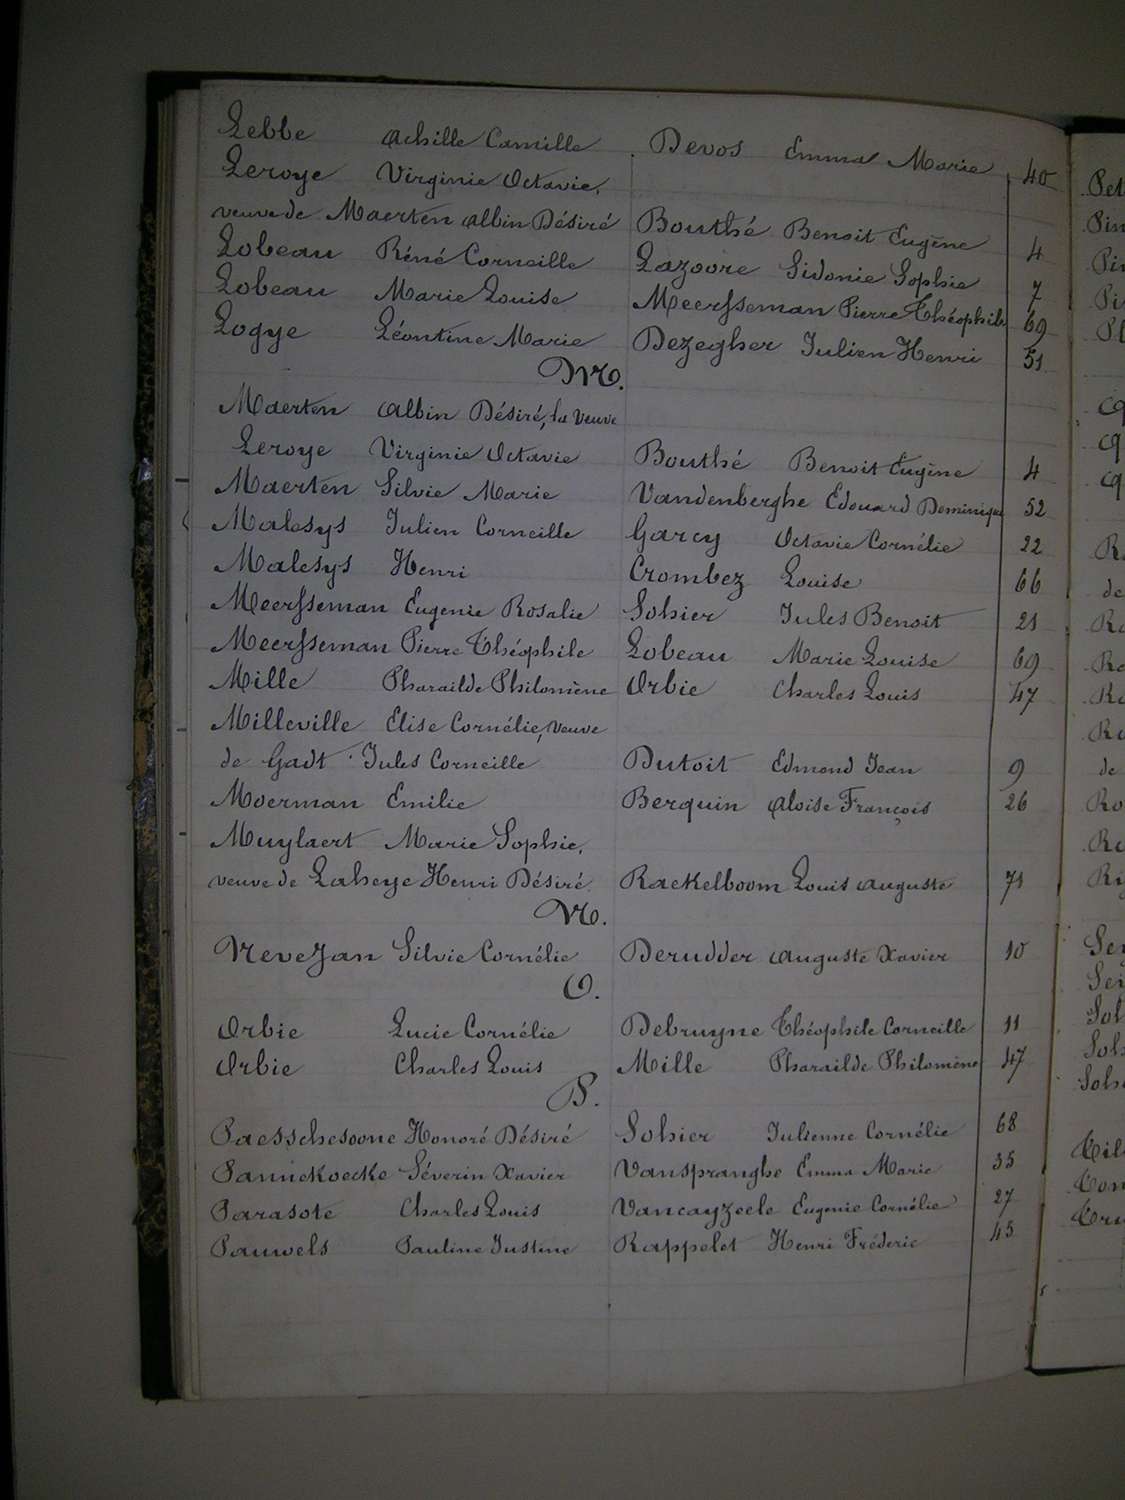 Lebbe Achille Camille Devos Emma Marie 40
Leroye Virginie Octavie,
veuve de Maerten Albin Désiré Bouthé Benoit Eugène 4
Lobeau Réné Corneille Lazoore Sidonie Sophie 7
Lobeau Marie Louise Meersseman Pierre Théophile 69
Logye Léontine Marie Dezegher Julien Henri 51
M.
Maerten Albin Désiré, la veuve
Leroye Virginie Octavie Bouthé Benoit Eugène 4
Maerten Silvie Marie Vandenberghe Edouard Dominique 52
Malesys Julien Corneille Garcy Octavie Cornélie 22
Malesys Henri Crombez Louise 66
Meersseman Eugenie Rosalie Sohier Jules Benoit 21
Meersseman Pierre Théophile Lobeau Marie Louise 69
Mille Pharailde Philomène Orbie Charles Louis 47
Milleville Elise Cornélie, veuve
de Gadt Jules Corneille Dutoit Edmond Jean 9
Moerman Emilie Berquin Aloïse François 26
Muylaert Marie Sophie,
veuve de Laheye Henri Désiré Rackelboom Louis Auguste 71
N.
Nevejan Silvie Cornélie Derudder Auguste Xavier 10
O.
Orbie Lucie Cornélie Debruyne Théophile Corneille 11
Orbie Charles Louis Mille Pharailde Philomène 47
P.
Paesschesoone Honoré Désiré Sohier Julienne Cornélie 68
Pannekoecke Séverin Xavier Vanspranghe Emma Marie 35
Parasote Charles Louis Vancayzeele Eugenie Cornélie 27
Pauwels Pauline Justine Rappelet Henri Fréderic 45